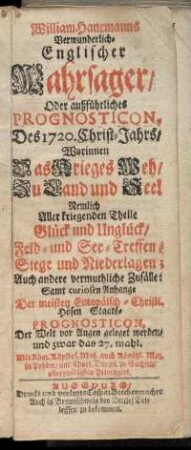 William Hanemanns
Verwunderlich-
Englischer
Wahrsager/
Oder außführliches
PROGNOSTICON,
Des 1720. Christ-Jahrs/
Worinnen
Das Krieges Weh/
Zu Land und See/
Nemlich
Aller kriegenden Theile
Glück und Unglück/
Feld- und See-Treffen/
Siege und Niederlagen;
Auch andere vermuthliche Zufälle:
Samt curiosen Anhange
Der meisten Europäisch-Christl.
Hofen Staats-
PROGNOSTICON,
Der Welt vor Augen geleget worden/
und zwar das 27. mahl.
in Pohlen/ und Churf. Durchl. zu Sachsen/